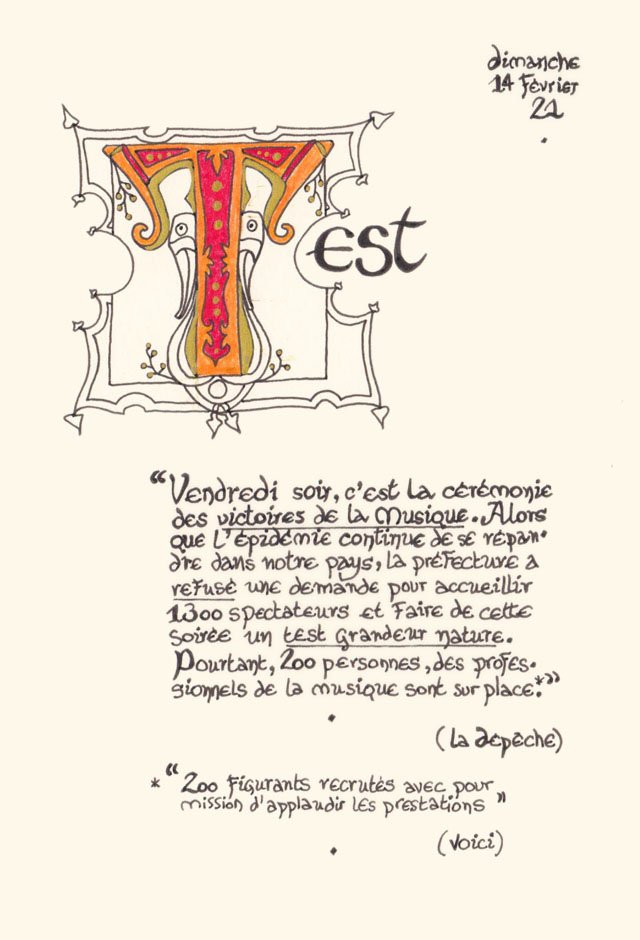 dimanche
14 février
21
Test
"Vendredi soir, c'est la cérémonie
des victoires de la Musique. Alors
que l'épidémie continue de se répan-
dre dans notre pays, la préfecture a
refusé une demande pour accueillir
1300 spectateurs et faire de cette
soirée un test grandeur nature.
Pourtant, 200 personnes, des profes-
sionnels de la musique sont sur place.*"
(la dépêche)
* "200 figurants recrutés avec pour
mission d'applaudir les prestations"
(Voici)